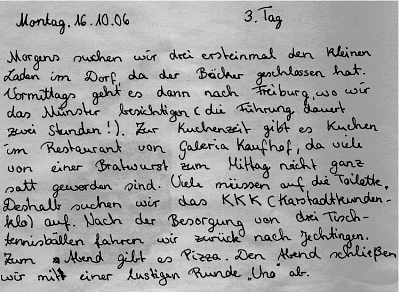 Montag, 16.10.06 3. Tag
Morgens suchen wir drei ersteinmal den kleinen
Laden im Dorf, da der Bäcker geschlossen hat.
Vormittags geht es dann nach Freiburg, wo wir
das Münster besichtigen (die Führung dauert
zwei Stunden!). Zur Kuchenzeit gibt es Kuchen
im Restaurant von Galeria Kaufhof, da viele
von einer Bratwurst zum Mittag nicht ganz
satt geworden sind. Viele müssen auf die Toilette.
Deshalb suchen wir das KKK (Karstadtkunden-
klo) auf. Nach der Besorgung von drei Tisch-
tennisbällen fahren wir zurück nach Jechtingen.
Zum Abend gibt es Pizza. Den Abend schließen
wir mit einer lustigen Runde „Uno ab.